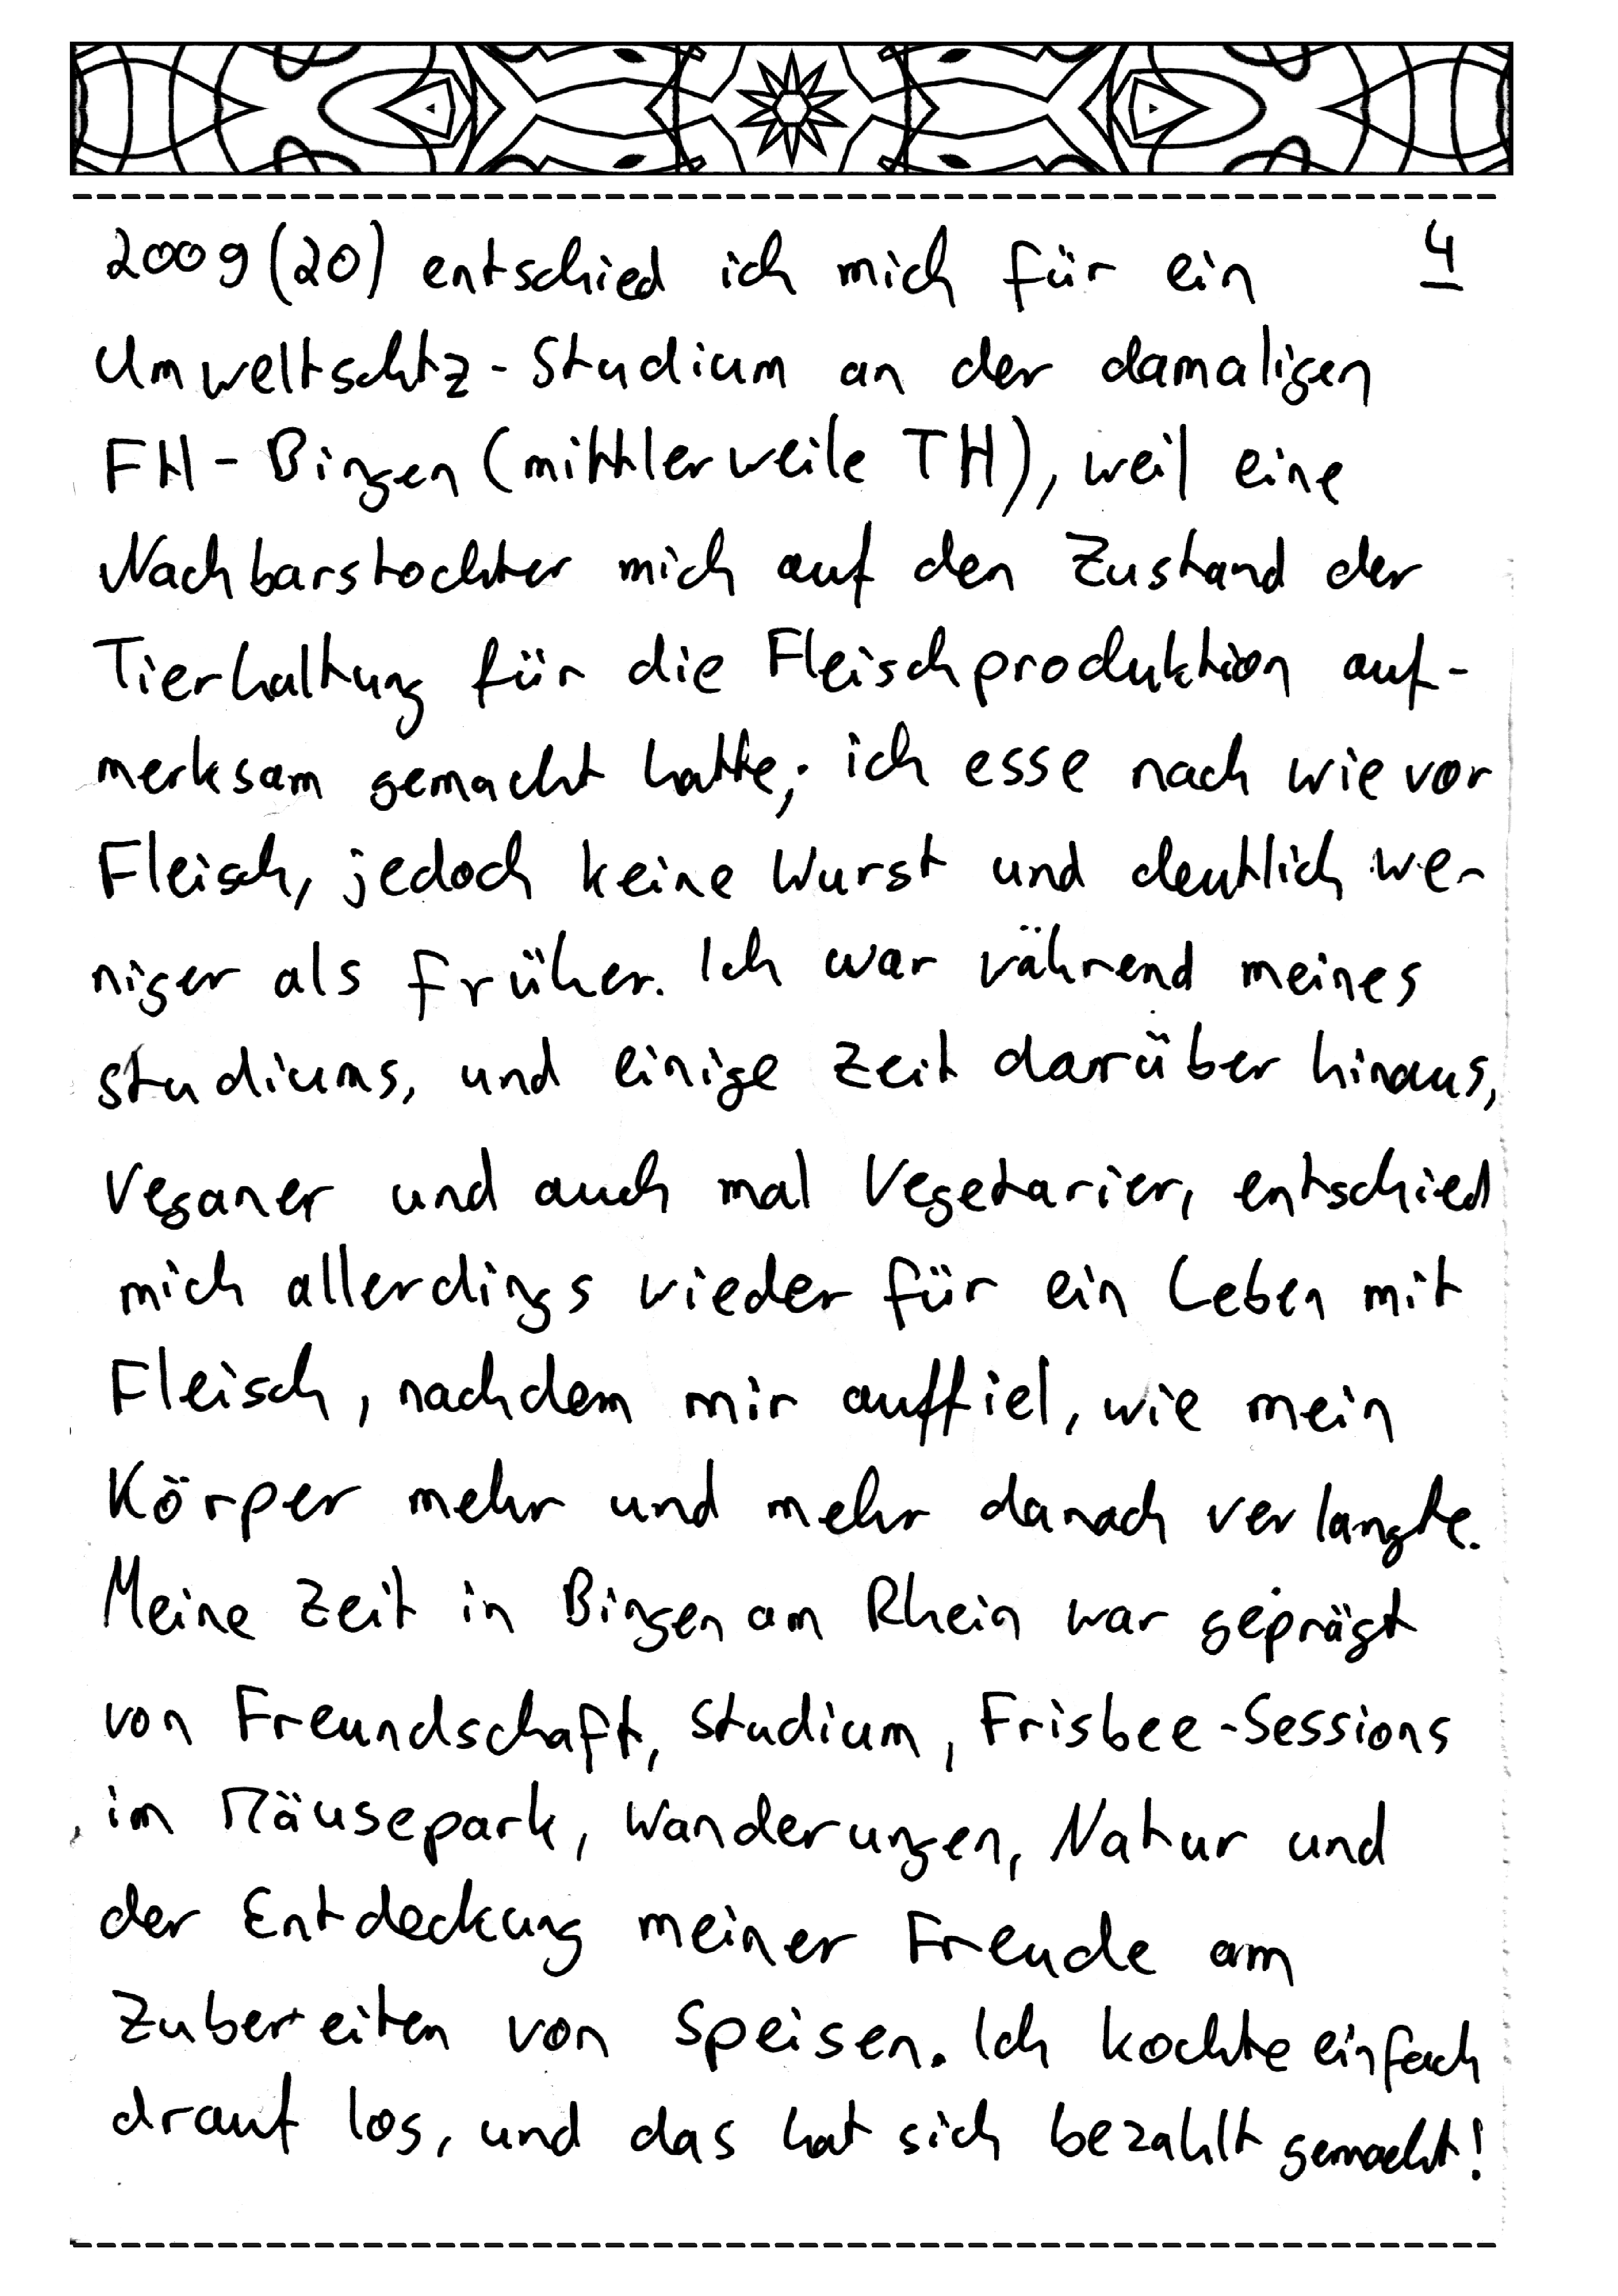 2009 (20) entschied ich mich für ein 4
Umweltschtz-Studium an der damaligen
FH-Bingen (mittlerweile TH), weil eine
Nachbarstochter mich auf den Zustand der
Tierhaltung für die Fleischproduktion auf-
merksam gemacht hatte; ich esse nach wie vor
Fleisch, jedoch keine Wurst und deutlich we-
niger als früher. Ich war während meines
Studiums, und einige Zeit darüber hinaus,
Veganer und auch mal Vegetarier, entschied
mich allerdings wieder für ein Leben mit
Fleisch, nachdem mir auffiel, wie mein
Körper mehr und mehr danach verlangte.
Meine Zeit in Bingen am Rhein war geprägt
von Freundschaft, Studium, Frisbee-Sessions
im Mäusepark, Wanderungen, Natur und
der Entdeckung meiner Freude am
Zubereiten von Speisen. Ich kochte einfach
drauf los, und das hat sich bezahlt gemacht!